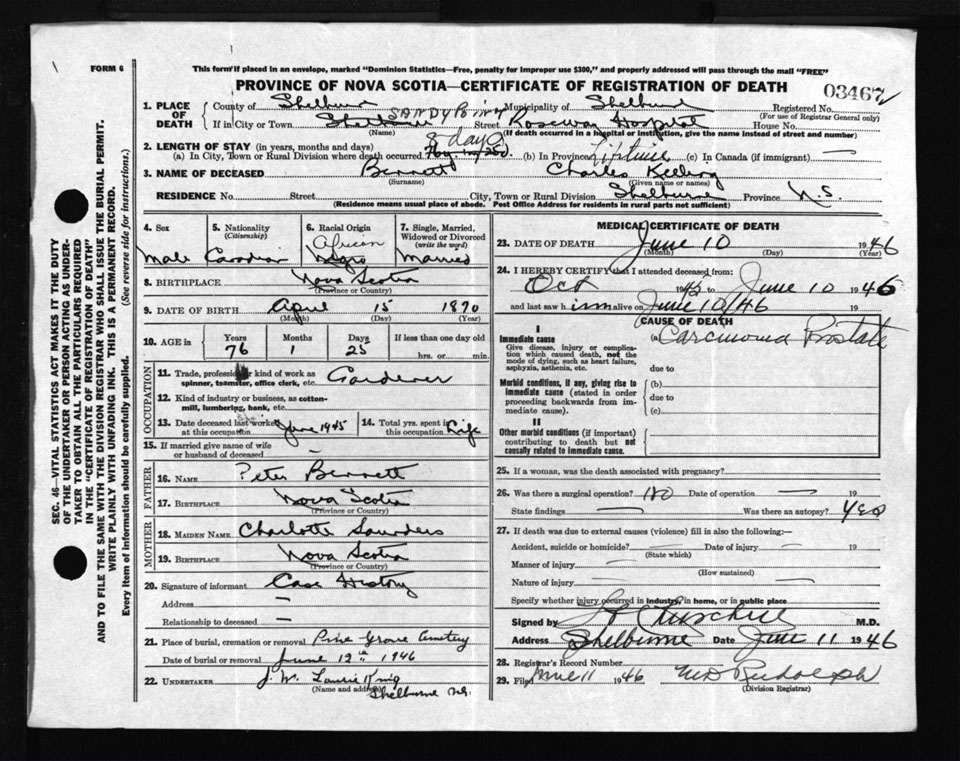 FORM 6
This form if placed in an envelope, marked "Dominion Statistics—Free, penalty for improper use $300," and properly addressed will pass through the mail "FREE"
PROVINCE OF NOVA SCOTIA—CERTIFICATE OF REGISTRATION OF DEATH
03467
SEC. 46—VITAL STATISTICS ACT MAKES IT THE DUTY
OF THE UNDERTAKER OR PERSON ACTING AS UNDER-
TAKER TO OBTAIN ALL THE PARTICULARS REQUIRED
IN THE "CERTIFICATE OF REGISTRATION OF DEATH"
AND TO FILE THE SAME WITH THE DIVISION REGISTRAR WHO SHALL ISSUE THE BURIAL PERMIT.
WRITE PLAINLY WITH UNFADING INK. THIS IS A PERMANENT RECORD.
Every item of information should be carefully supplied. (See reverse side for instructions.)
1. PLACE OF DEATH
County of Shelburne Municipality of Shelburne Registered No.
(For use of Registrar General only)
SANDY POINT
If in City or Town Shelburne Street Roseway Hospital House No.
(Name) (If death occurred in a hospital or institution, give its name instead of street and number)
2. LENGTH OF STAY (in years, months and days) 8 days
(a) In City, Town or Rural Division where death occurred (b) In Province Lifetime (c) In Canada (if immigrant) —
3. NAME OF DECEASED Bennett Charles
(Surname) (Given name or names)
RESIDENCE No. Street City, Town or Rural Division Shelburne Province N.S.
(Residence means usual place of abode. Post Office Address for residents in rural parts not sufficient)
4. Sex
Male
5. Nationality
(Citizenship)
Canadian
6. Racial Origin
African
Negro
7. Single, Married,
Widowed or Divorced
(write the word)
Married
8. BIRTHPLACE Nova Scotia
(Province or Country)
9. DATE OF BIRTH April 15 1870
(Month) (Day) (Year)
10. AGE in Years Months Days If less than one day old
76 1 25 hrs. or min.
OCCUPATION
11. Trade, profession or kind of work as
spinner, teamster, office clerk, etc. Gardener
12. Kind of industry or business, as cotton-
mill, lumbering, bank, etc.
13. Date deceased last worked
at this occupation June 1945
14. Total yrs. spent in
this occupation Life
15. If married give name of wife
or husband of deceased —
FATHER
16. NAME Peter Bennett
17. BIRTHPLACE Nova Scotia
(Province or Country)
MOTHER
18. MAIDEN NAME Charlotte Saunders
19. BIRTHPLACE Nova Scotia
(Province or Country)
20. Signature of informant Case History
Address —
Relationship to deceased —
21. Place of burial, cremation or removal Pine Grove Cemetery
Date of burial or removal June 12th 1946
22. UNDERTAKER J. W. Laurie King
(Name and address) Shelburne N.S.
MEDICAL CERTIFICATE OF DEATH
23. DATE OF DEATH June 10 1946
(Month) (Day) (Year)
24. I HEREBY CERTIFY that I attended deceased from
Oct 1945 to June 10 1946
and last saw him alive on June 10/46
CAUSE OF DEATH
I
Immediate cause
Give disease, injury or complica-
tion which caused death, not the
mode of dying, such as heart failure,
asphyxia, asthenia, etc.
(a) Carcinoma Prostate
due to
Morbid conditions, if any, giving rise to
immediate cause (stated in order
proceeding backwards from im-
mediate cause).
(b)
due to
(c)
II
Other morbid conditions (if important)
contributing to death but not
causally related to immediate cause.
25. If a woman, was the death associated with pregnancy?
26. Was there a surgical operation? No Date of operation — 19
State findings — Was there an autopsy? Yes
27. If death was due to external causes (violence) fill in also the following:—
Accident, suicide or homicide? — Date of injury — 19
(State which)
Manner of injury —
(How sustained)
Nature of injury —
Specify whether injury occurred in industry, in home, or in public place
Signed by Churchill M.D.
Address Shelburne Date June 11 1946
28. Registrar's Record Number
29. Filed June 11 1946 Rudolph
(Division Registrar)